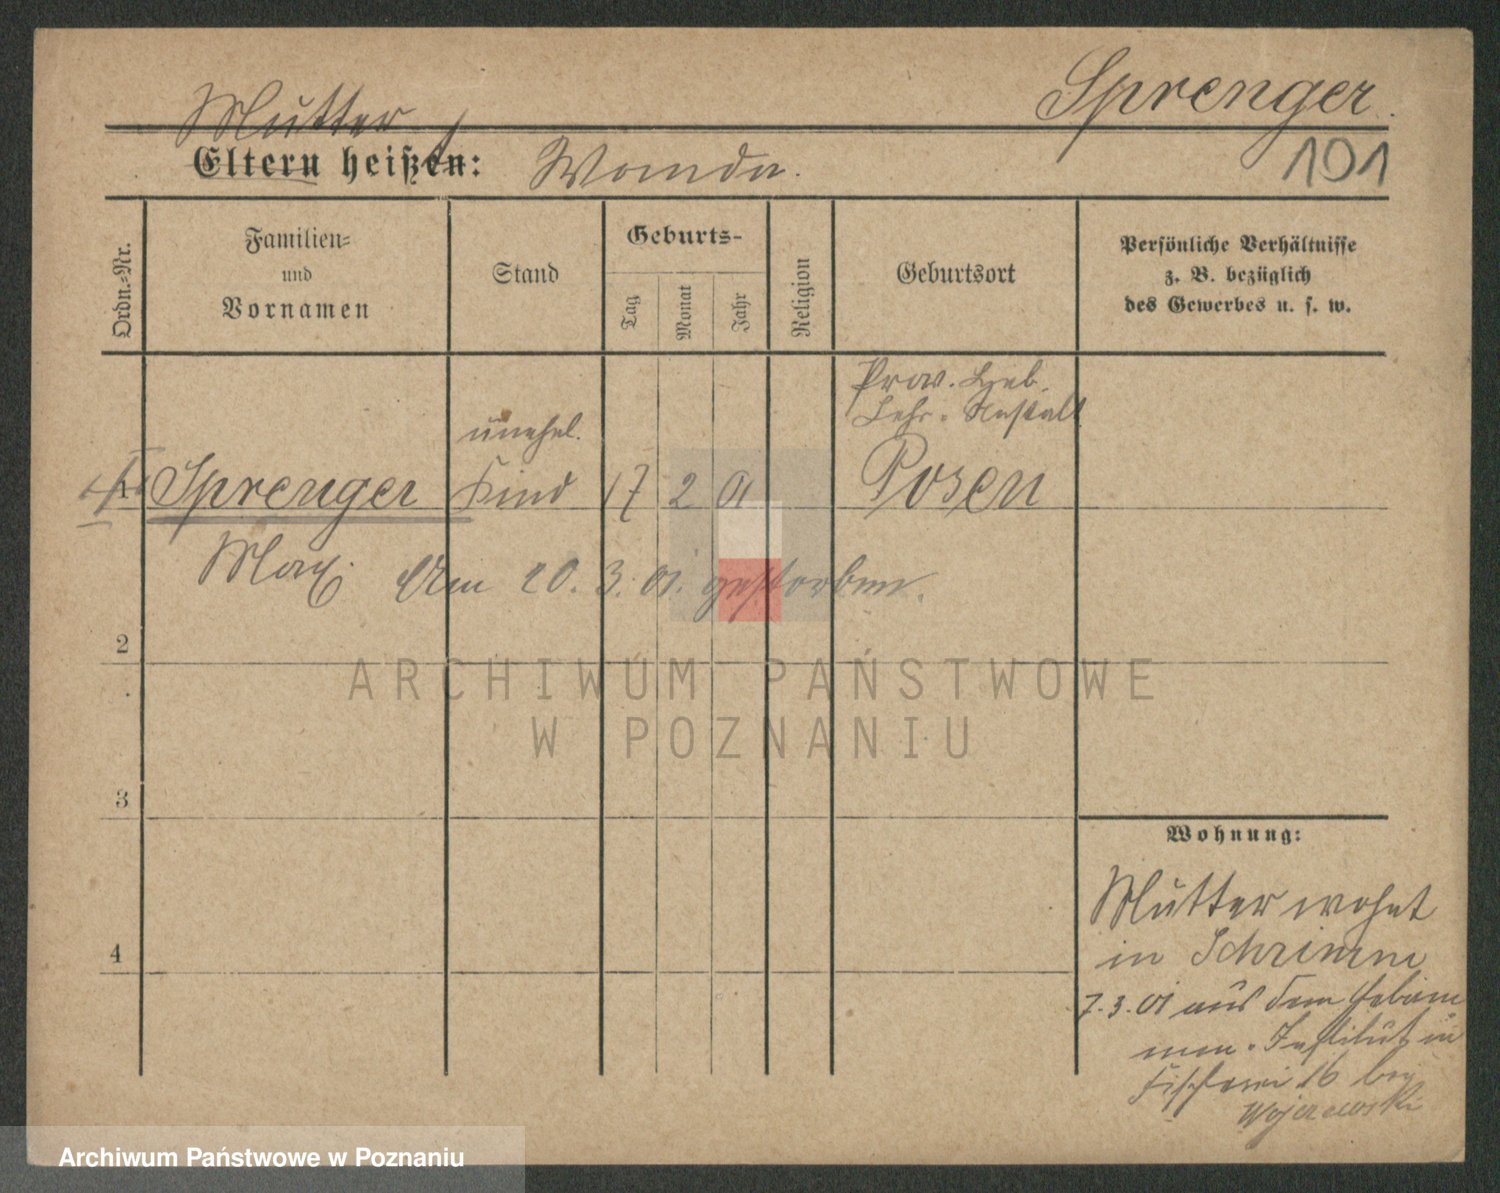 Sprenger.
191
Mutter
Eltern heißen: Wanda.
Ordn.-Nr.
Familien-
und
Vornamen
Stand
Geburts-
Tag
Monat
Jahr
Religion
Geburtsort
Persönliche Verhältnisse
z. B. bezüglich
des Gewerbes u. s. w.
Prov. Heb.
Lehr-Anstalt
unehel.
1 Sprenger Kind 17 2 01 Posen
Max. Am 20. 3. 01. gestorben.
2
ARCHIWUM PAŃSTWOWE
W POZNANIU
3
4
Wohnung:
Mutter wohnt
in Schrimm
7.3.01 aus dem Hebam
men-Institut in
Fischerei 16 bei
Archiwum Państwowe w Poznaniu